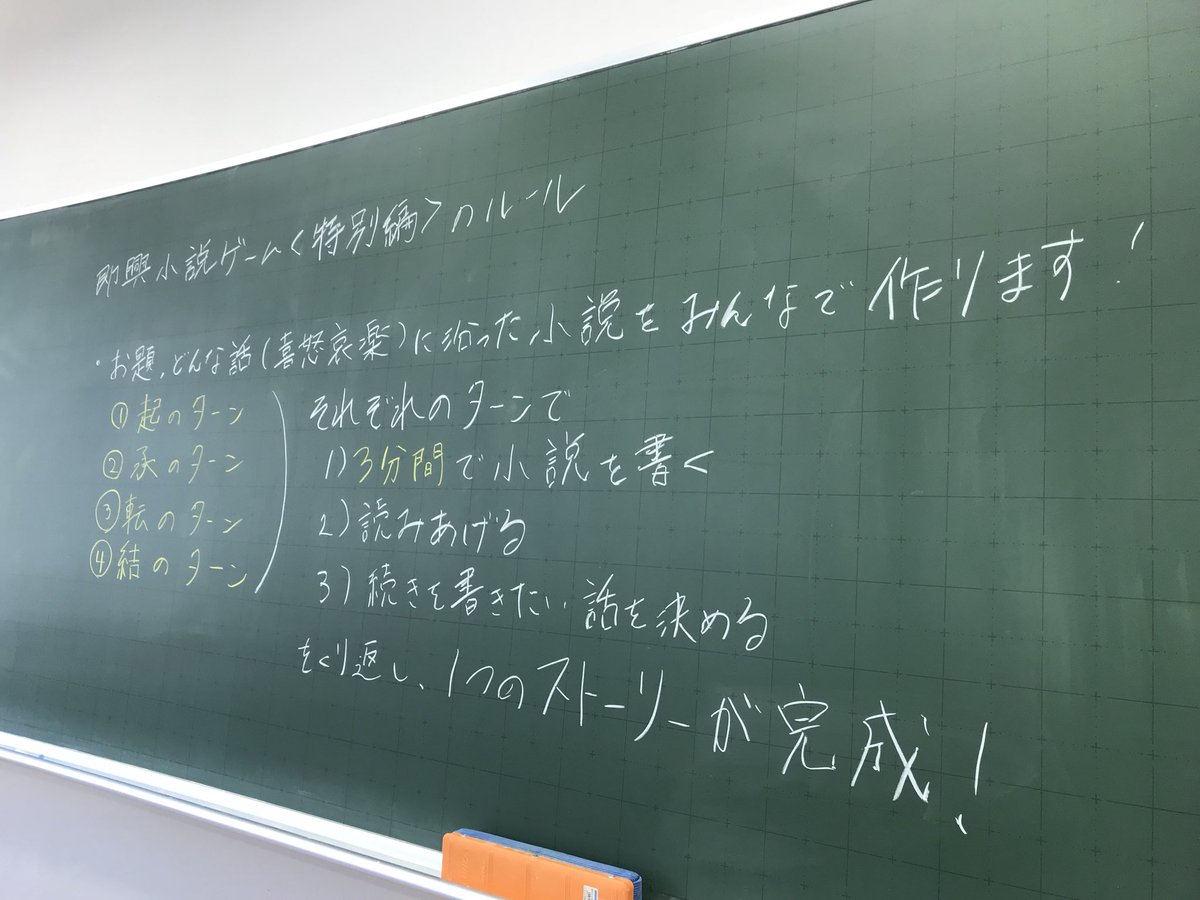 即興小説ゲーム<特別編>のルール
・お題,どんな話(喜怒哀楽)に沿った小説をみんなで作ります!
①起のターン
②承のターン
③転のターン
④結のターン
それぞれのターンで
1)3分間で小説を書く
2)読みあげる
3)続きを書きたい話を決める
をくり返し、1つのストーリーが完成!